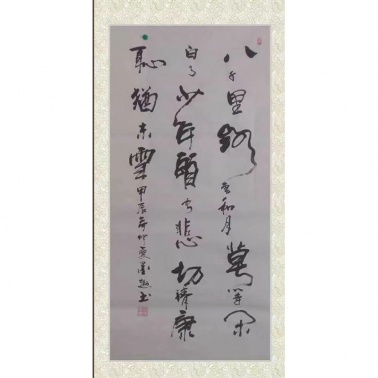 八千里路云和月莫等闲
白了少年頭空悲切靖康
恥猶未雪甲辰年仲夏书